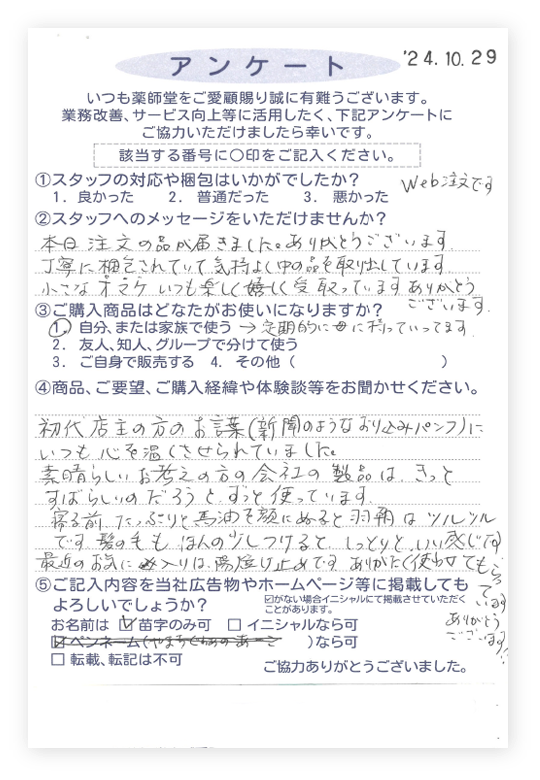 アンケート
'24.10.29
いつも薬師堂をご愛顧賜り誠に有難うございます。
業務改善、サービス向上等に活用したく、下記アンケートに
ご協力いただけましたら幸いです。
該当する番号に○印をご記入ください。
①スタッフの対応や梱包はいかがでしたか? Web注文です
1. 良かった 2. 普通だった 3. 悪かった
②スタッフへのメッセージをいただけませんか?
本日注文の品が届きました。ありがとうございます。
丁寧に梱包されていて気持よく中の品を取り出しています
小さなオマケいつも楽しく嬉しく受取っています ありがとう
ございます.
③ご購入商品はどなたがお使いになりますか?
1. 自分、または家族で使う → 定期的に母に持っていってます
2. 友人、知人、グループで分けて使う
3. ご自身で販売する 4. その他( )
④商品、ご要望、ご購入経緯や体験談等をお聞かせください。
初代店主の方のお言葉(新聞のようなおり込みパンフ)に
いつも心を温くさせられていました。
素晴らしいお考えの方の会社の製品は、きっと
すばらしいのだろうと、ずっと使っています.
寝る前、たっぷりと馬油を顔にぬると翌朝はツルツル
です 髪の毛も ほんの少しつけると、しっとりと、いい感じです
最近のお気に入りは、陽焼け止めです ありがたく使わせてもらっています
ありがとうございます!
⑤ご記入内容を当社広告物やホームページ等に掲載しても
よろしいでしょうか? ☑がない場合イニシャルにて掲載させていただくことがあります。
お名前は ☑苗字のみ可 □イニシャルなら可
☑ペンネーム( )なら可
□ 転載、転記は不可
ご協力ありがとうございました。